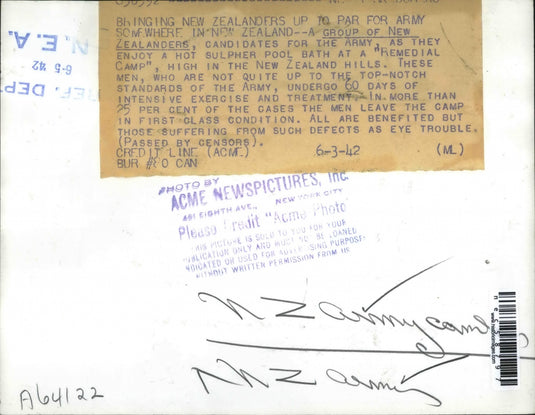 BRINGING NEW ZEALANDERS UP TO PAR FOR ARMY
SOMEWHERE IN NEW ZEALAND--A GROUP OF NEW
ZEALANDERS, CANDIDATES FOR THE ARMY, AS THEY
ENJOY A HOT SULPHER POOL BATH AT A "REMEDIAL
CAMP", HIGH IN THE NEW ZEALAND HILLS. THESE
MEN, WHO ARE NOT QUITE UP TO THE TOP-NOTCH
STANDARDS OF THE ARMY, UNDERGO 60 DAYS OF
INTENSIVE EXERCISE AND TREATMENT. IN MORE THAN
25 PER CENT OF THE CASES THE MEN LEAVE THE CAMP
IN FIRST CLASS CONDITION. ALL ARE BENEFITED BUT
THOSE SUFFERING FROM SUCH DEFECTS AS EYE TROUBLE.
(PASSED BY CENSORS).
CREDIT LINE (ACME) 6-3-42 (ML)
BUR O CAN
N.E.A.
6-5-42
REF. DEPT
PHOTO BY
ACME NEWSPICTURES, Inc.
461 EIGHTH AVE., NEW YORK CITY
Please Credit "Acme Photo"
THIS PICTURE IS SOLD TO YOU FOR YOUR
PUBLICATION ONLY AND MUST NOT BE LOANED
SYNDICATED OR USED FOR ADVERTISING PURPOSES
WITHOUT WRITTEN PERMISSION FROM US
N Z army camp
N Z army
A64122